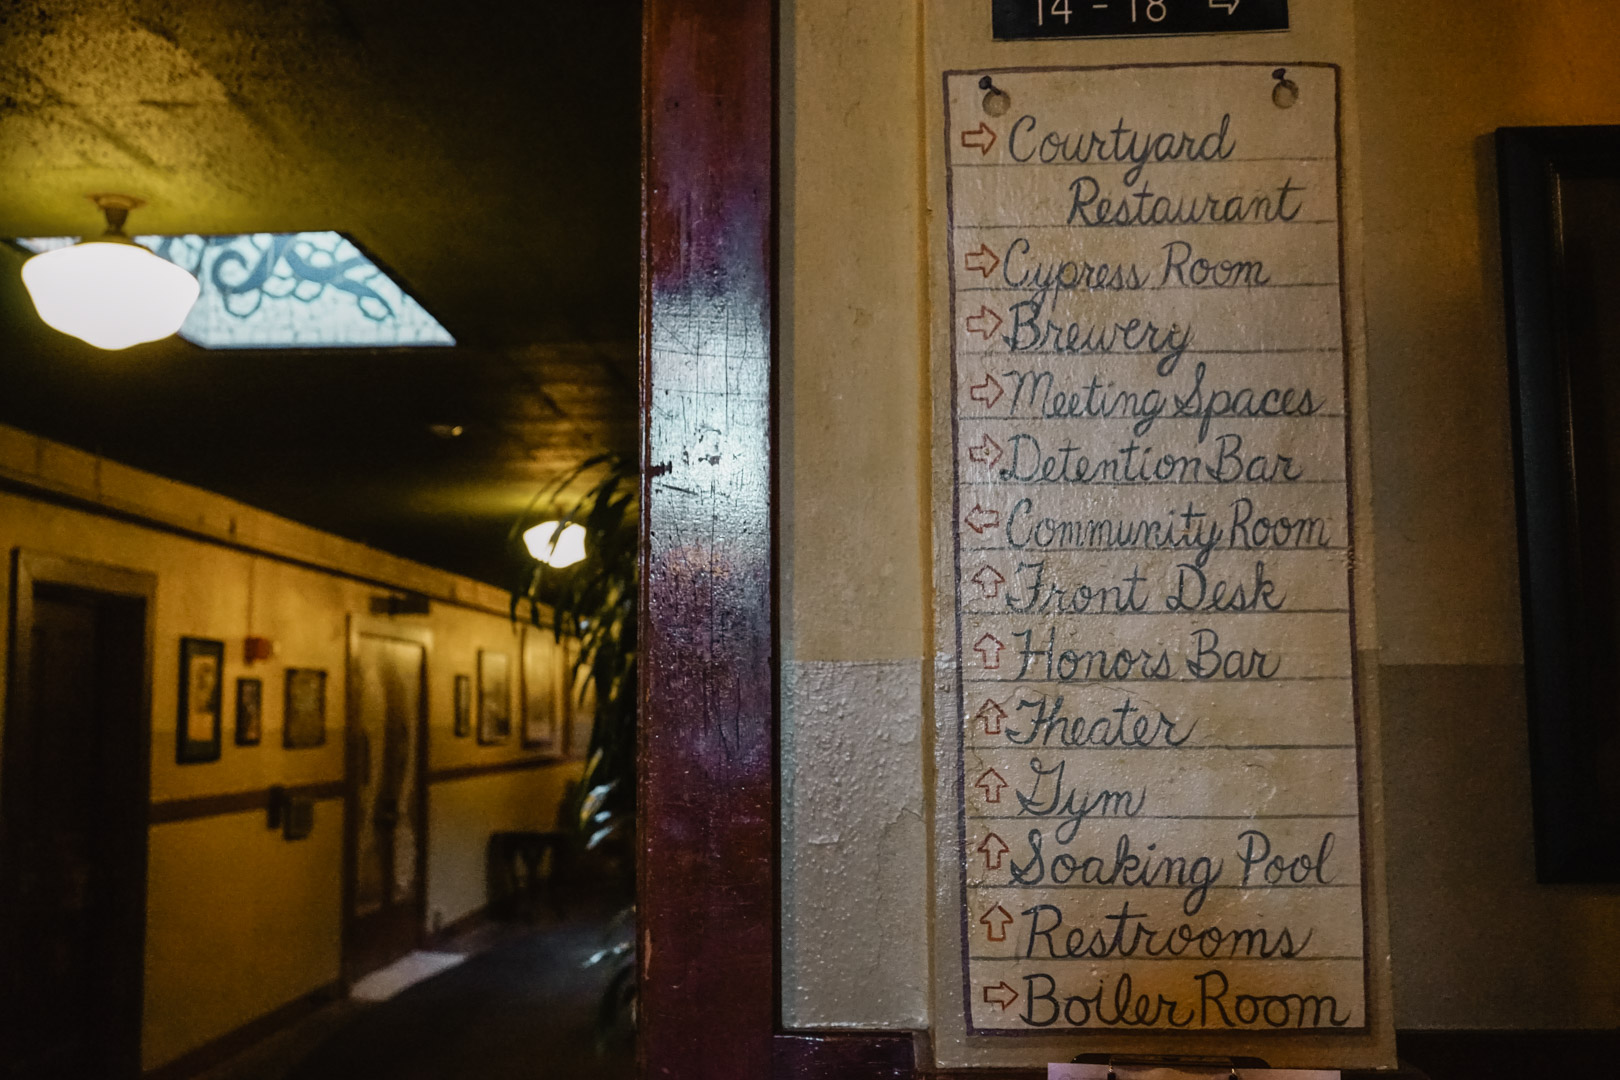 14 - 18 ⇨
⇨ Courtyard
Restaurant
⇨ Cypress Room
⇨ Brewery
⇨ Meeting Spaces
⇨ Detention Bar
⇦ Community Room
⇧ Front Desk
⇧ Honors Bar
⇧ Theater
⇧ Gym
⇧ Soaking Pool
⇧ Restrooms
⇨ Boiler Room